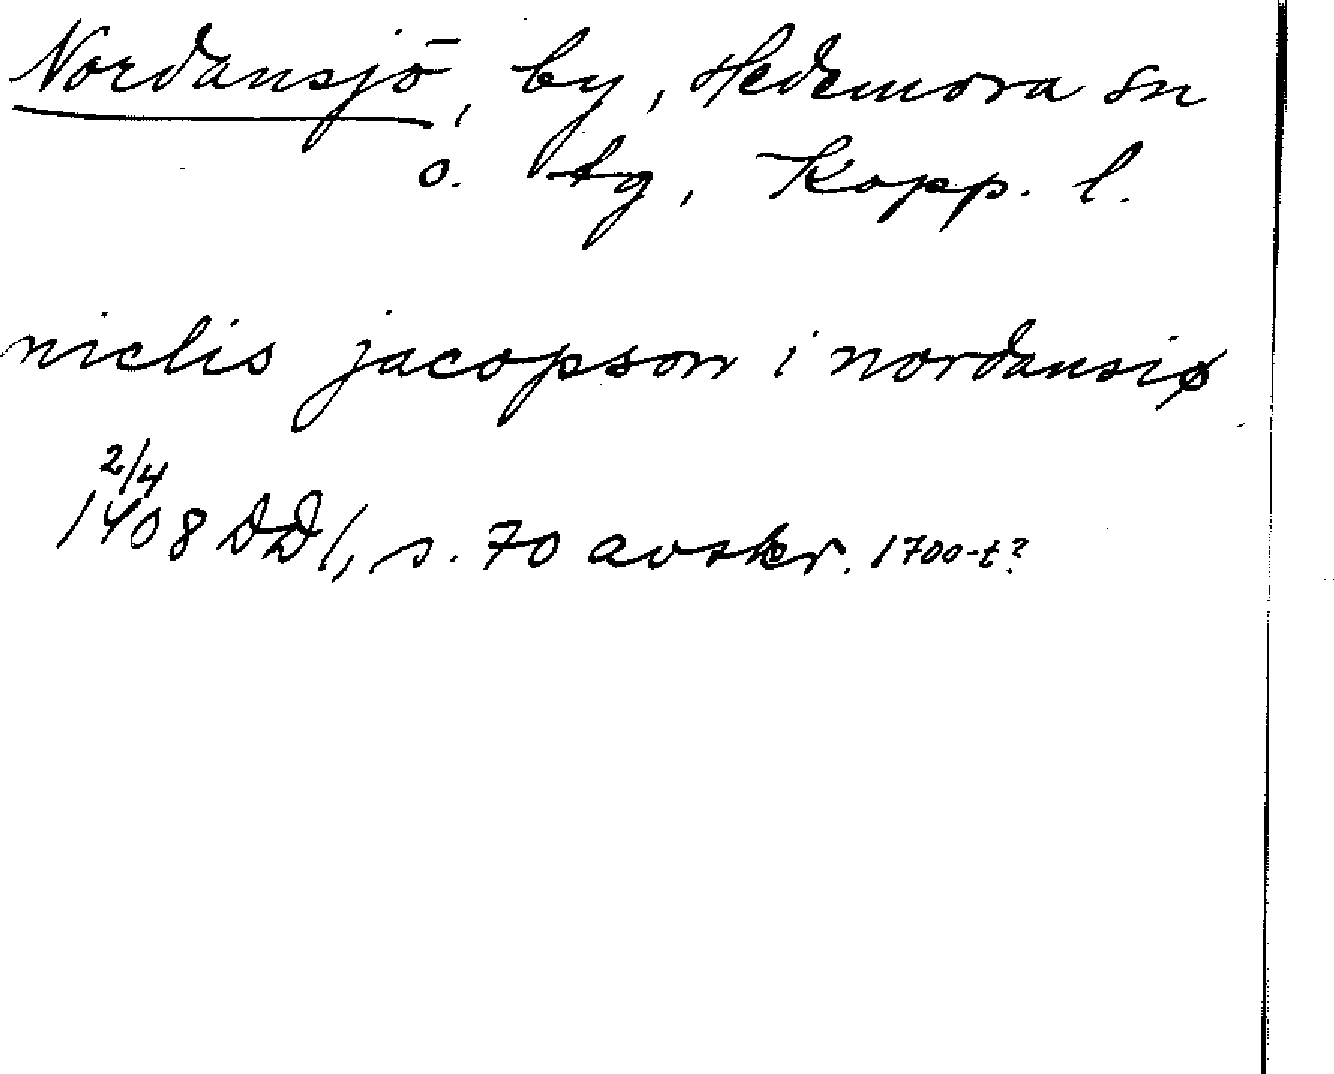 Nordansjö, by, Hedemora sn
o. tg, Kopp. l.
niclis jacopson i nordansiø
2/4
1408 DD 1, s. 70 avskr. 1700-t?